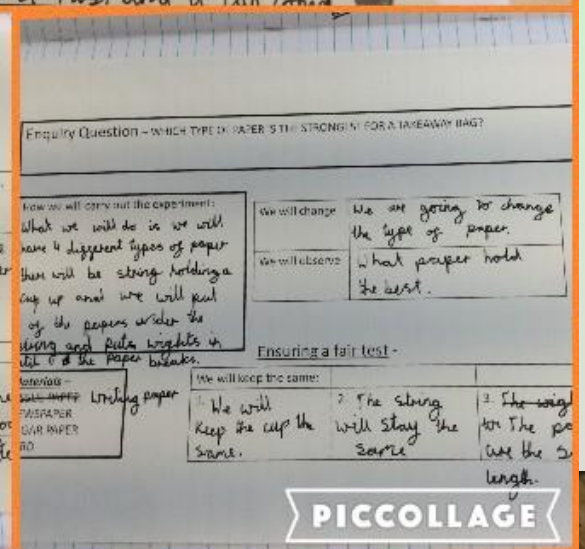 Enquiry Question – WHICH TYPE OF PAPER IS THE STRONGEST FOR A TAKEAWAY BAG?
How we will carry out the experiment:
What we will do is we will
have 4 different types of paper
there will be string holding a
cup up and we will put
of the papers under the
string and puts wights in
the paper breaks.
We will change
We are going to change
the type of paper.
We will observe
What paper hold
the best.
Ensuring a fair test -
Materials –
writing paper
NEWSPAPER
SUGAR PAPER
We will keep the same:
1. We will
keep the cup the
same.
2. The string
will stay the
same
3.
The
are the
length.
PICCOLLAGE